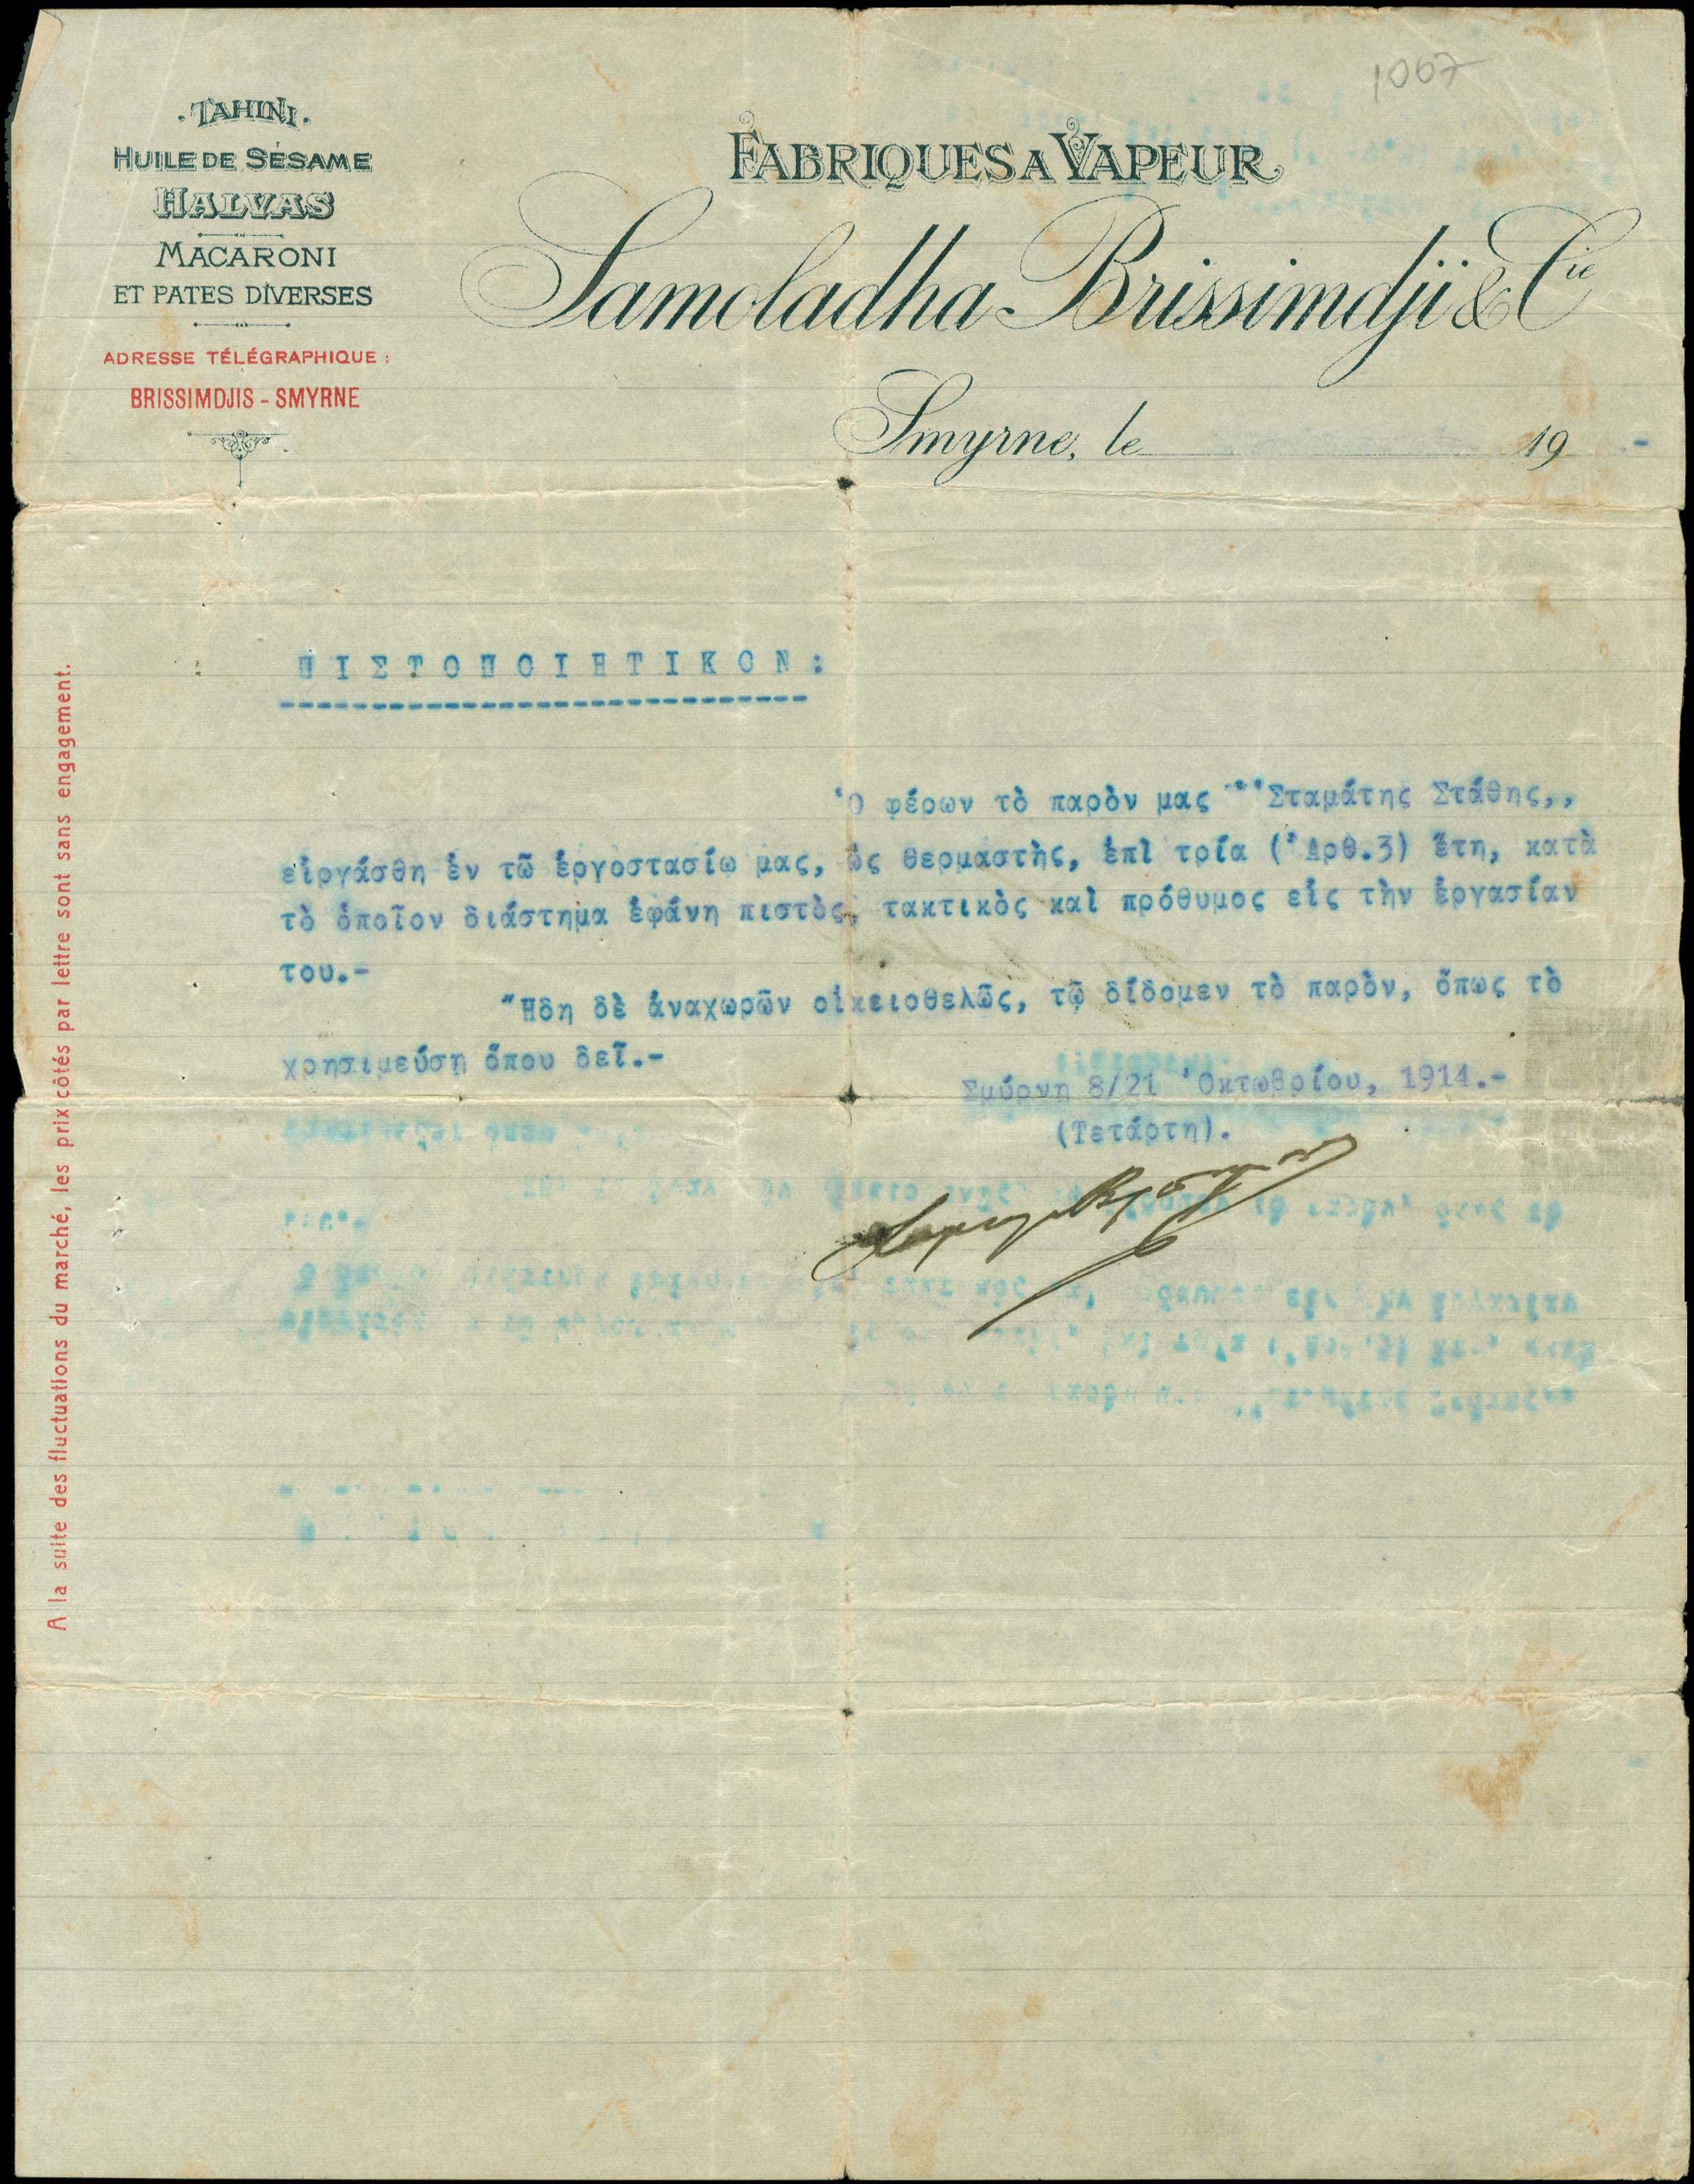 1067
. TAHINI .
HUILE DE SÉSAME
HALVAS
MACARONI
ET PATES DIVERSES
ADRESSE TÉLÉGRAPHIQUE :
BRISSIMDJIS - SMYRNE
FABRIQUES A VAPEUR
Samoladha Brissimdji & Cie
Smyrne, le 19
ΠΙΣΤΟΠΟΙΗΤΙΚΟΝ:
-----------------------------
Ὁ φέρων τὸ παρὸν μας "Σταμάτης Στάθης,,
εἰργάσθη ἐν τῶ ἐργοστασίω μας, ὡς θερμαστὴς, ἐπὶ τρία (Ἀρθ.3) ἔτη, κατὰ
τὸ ὁποῖον διάστημα ἐφάνη πιστὸς, τακτικὸς καὶ πρόθυμος εἰς τὴν ἐργασίαν
του.-
Ἤδη δὲ ἀναχωρῶν οἰκειοθελῶς, τῷ δίδομεν τὸ παρὸν, ὅπως τὸ
χρησιμεύση ὅπου δεῖ.-
Σμύρνη 8/21 Ὀκτωβρίου, 1914.-
(Τετάρτη).
A la suite des fluctuations du marché, les prix côtés par lettre sont sans engagement.